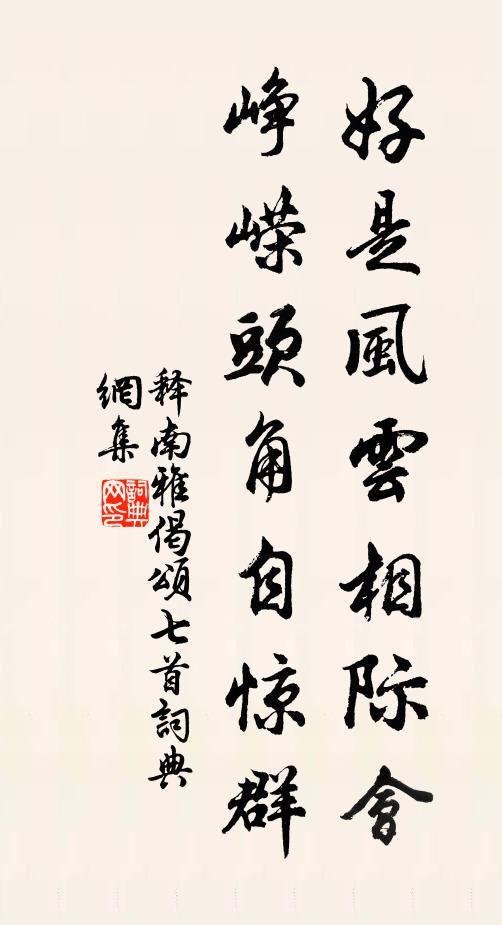 好是風雲相际會
峥嵘頭角自惊群
释南雅偈頌七首詞典
網集
詞典網印